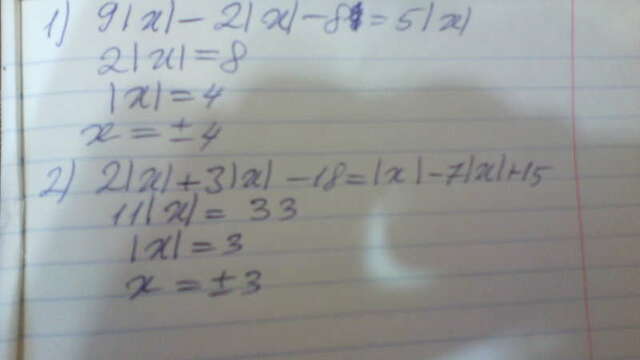 1) 9|x| - 2|x| - 8 = 5|x|
2|x| = 8
|x| = 4
x = ±4
2) 2|x| + 3|x| - 18 = |x| - 7|x| + 15
11|x| = 33
|x| = 3
x = ±3